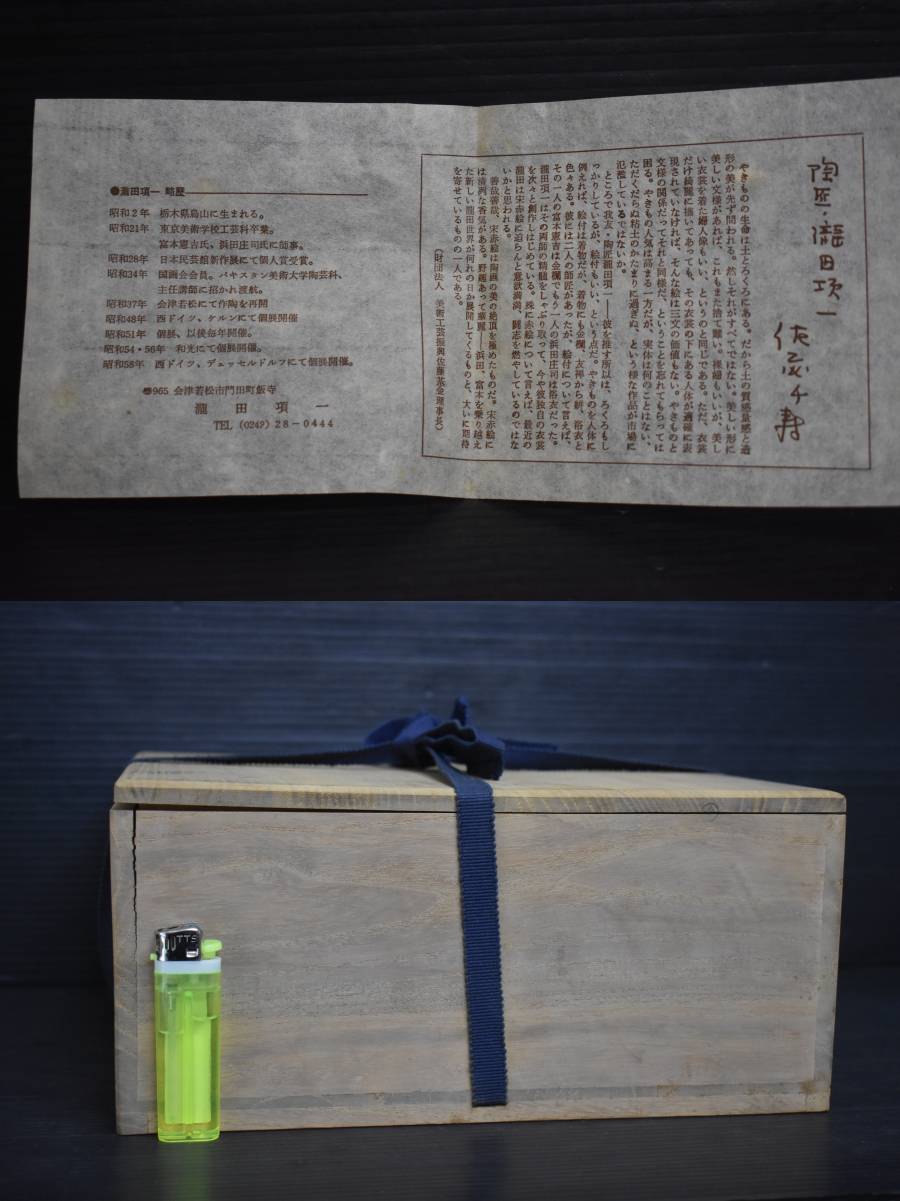 陶匠・瀧田項一
佐瓜千寿
やきものの生命は土とろくろにある。だから土の質感量感と造
形の美が先ず問われる。然しそれがすべてではない。美しい形に
美しい文様があれば、これもまた捨て難い。裸婦もいいが、美し
い衣裳を着た婦人像もいい、というのと同じである。ただ、衣裳
だけ綺麗に描いてあっても、その衣裳の下にある人体が適確に表
現されていなければ、そんな絵は三文の価値もない。やきものと
文様の関係だってそれと同様だ、ということを忘れてもらっては
困る。やきもの人気は高まる一方だが、実体は何のことはない、
ただくだらぬ粘土のかたまりに過ぎぬ、という様な作品が市場に
氾濫しているではないか。
ところで我友・陶匠瀧田項一——彼を推す所以は、ろくろもし
っかりしているが、絵付もいい、という点だ。やきものを人体に
例えれば、絵付は着物だが、着物にも金襴、友禅から絣、浴衣と
色々ある。彼には二人の師匠があったが、絵付について言えば、
その一人の富本憲吉は金襴でもう一人の浜田庄司は浴衣だった。
瀧田項一はその両師の精髄をしゃぶり取って、今や彼独自の衣裳
を次々と創作しはじめている。殊に赤絵について言えば、最近の
瀧田は宋赤絵に迫らんと意欲満満、闘志を燃やしているのではな
いかと思われる。
善哉善哉、宋赤絵は陶画の美の絶頂を極めたものだ。宋赤絵に
は清冽な香気がある。野趣あって華麗——浜田、富本を乗り越え
た新しい瀧田世界が何れの日か展開してくるものと、大いに期待
を寄せているものの一人である。
（財団法人　美術工芸振興佐藤基金理事長）
●瀧田項一　略歴
昭和２年　栃木県烏山に生まれる。
昭和21年　東京美術学校工芸科卒業。
富本憲吉氏。浜田庄司氏に師事。
昭和28年　日本民芸館新作展にて個人賞受賞。
昭和34年　国画会会員。パキスタン美術大学陶芸科、
主任講師に招かれ渡航。
昭和37年　会津若松にて作陶を再開
昭和48年　西ドイツ、ケルンにて個展開催
昭和51年　個展、以後毎年開催。
昭和54・56年　和光にて個展開催。
昭和58年　西ドイツ、デュッセルドルフにて個展開催。
●965 会津若松市門田町飯寺
瀧田項一
TEL (0242) 28-0444
TTS